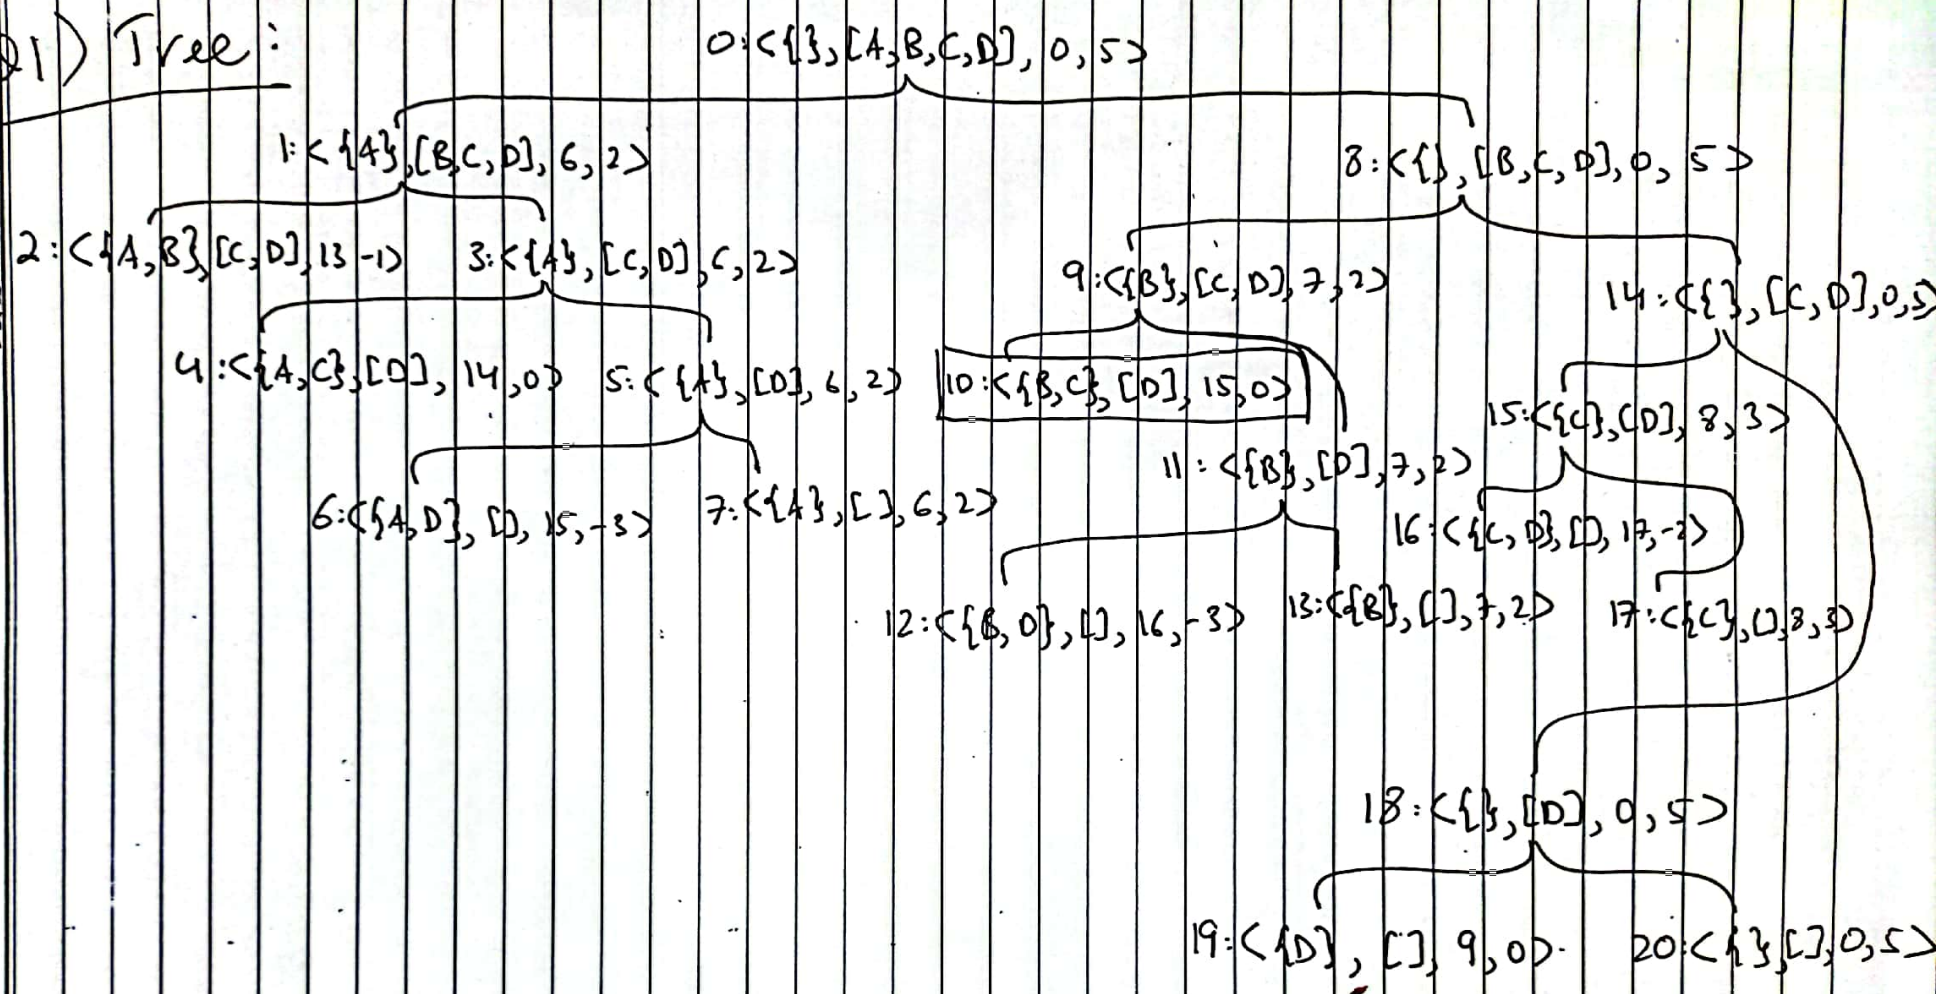 Q1) Tree:
0:<{},[A,B,C,D], 0,5>
1:<{A},[B,C,D], 6,2>
8:<{},[B,C,D],0, 5>
2:<{A,B},[C,D],13 -1>
3:<{A},[C,D],6,2>
9:<{B},[C,D],7,2>
14:<{},[C,D],0,5>
4:<{A,C},[D], 14,0>
5:<{A},[D],6,2>
10:<{B,C},[D], 15,0>
15:<{C},[D], 8,3>
11:<{B},[D],7,2>
6:<{A,D}, [], 15,-3>
7:<{A},[],6,2>
16:<{C,D},[], 17,-2>
12:<{B,D},[], 16,-3>
13:<{B},[],7,2>
17:<{C},[],8,3>
18:<{},[D],0,5>
19:<{D}, [], 9,0>.
20:<{},[],0,5>